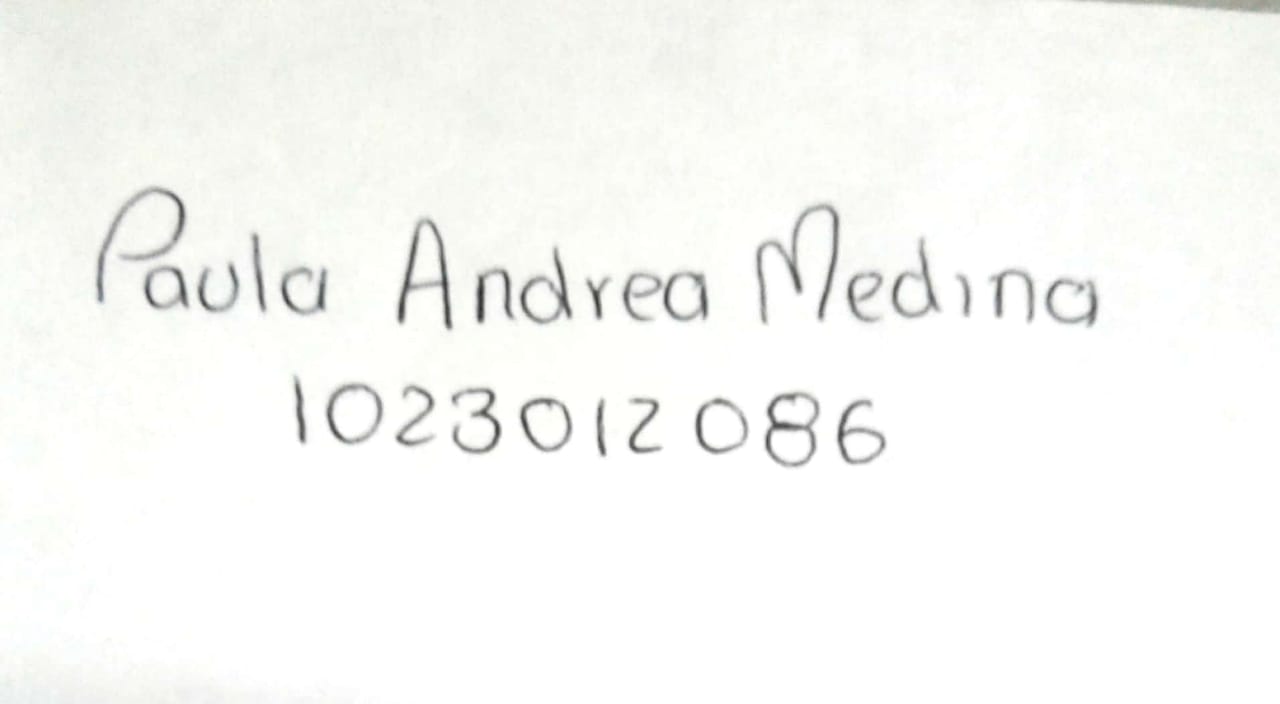 Paula Andrea Medina
1023012086